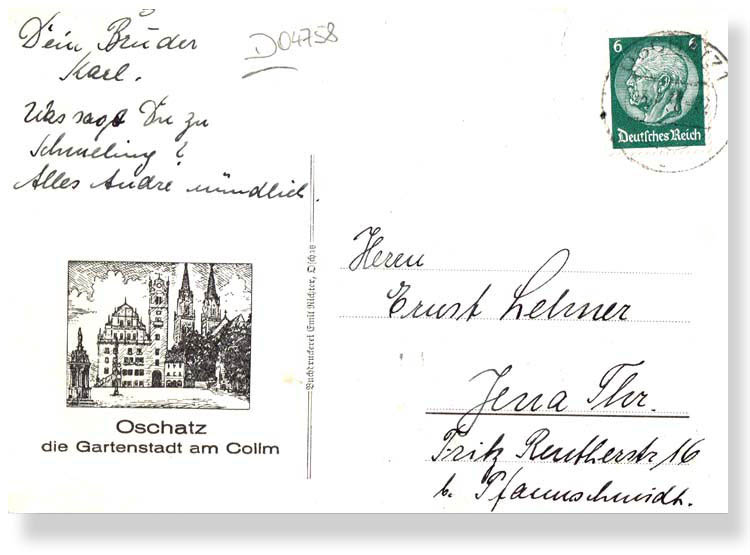 Dein Bruder
Karl.
Was sagst Du zu
Schmeling?
Alles Andre mündlich.
D04758
6 6
Deutsches Reich
Buchdruckerei Emil Richter, Oschatz
Herrn
Ernst Lehner
Jena Thr.
Fritz Reutherstr 16
b. Pfannschmidt.
Oschatz
die Gartenstadt am Collm